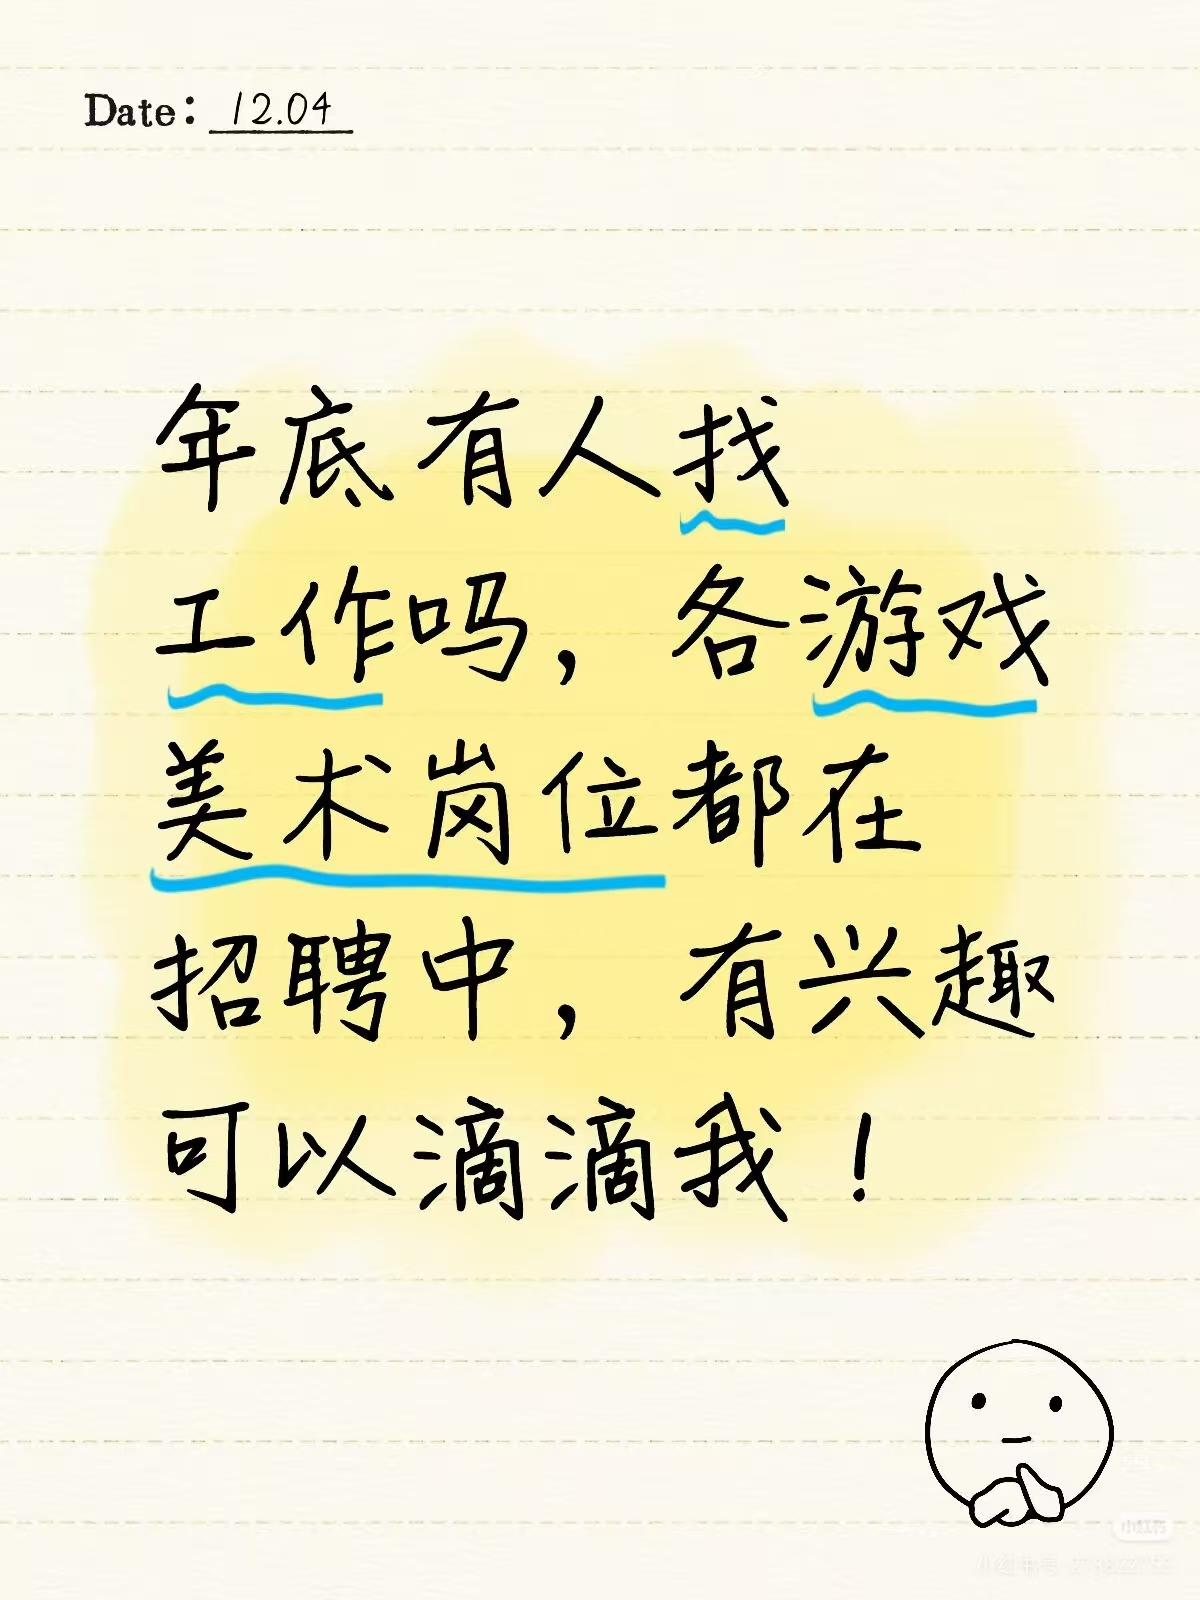 Date: 12.04
年底有人找
工作吗，各游戏
美术岗位都在
招聘中，有兴趣
可以滴滴我！
小红书